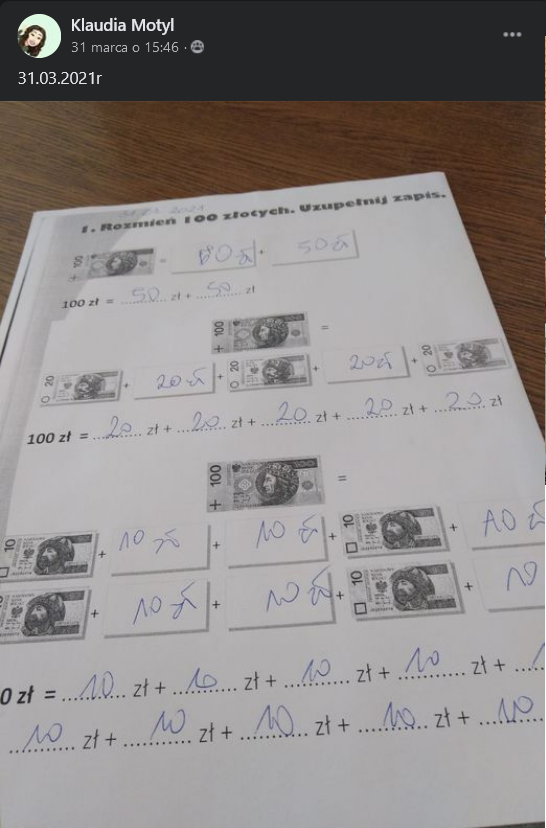 Klaudia Motyl
31 marca o 15:46 ·
31.03.2021r
31.03.2021
1. Rozmień 100 złotych. Uzupełnij zapis.
100 = 50 zł + 50 zł
100 zł = 50 zł + 50 zł
100 =
20 + 20 zł + 20 + 20 zł + 20
100 zł = 20 zł + 20 zł + 20 zł + 20 zł + 20 zł
100 =
10 + 10 zł + 10 zł + 10 + 10 zł
+ 10 zł + 10 zł + 10 + 10
0 zł = 10 zł + 10 zł + 10 zł + 10 zł +
10 zł + 10 zł + 10 zł + 10 zł + 10